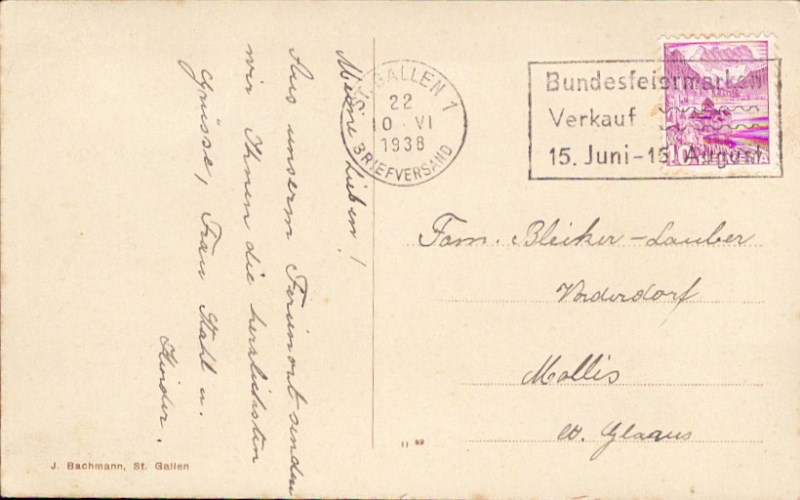 Meine Lieben!
Aus unserm Ferienort senden
wir Ihnen die herzlichsten
Grüsse, Frau Stahl u.
Kinder.
ST. GALLEN 1
22
10 · VI
1938
BRIEFVERSAND
Bundesfeiermarken
Verkauf
15. Juni-15. August
Fam. Bleiker-Lauber
Vorderdorf
Mollis
Kt. Glarus
J. Bachmann, St. Gallen